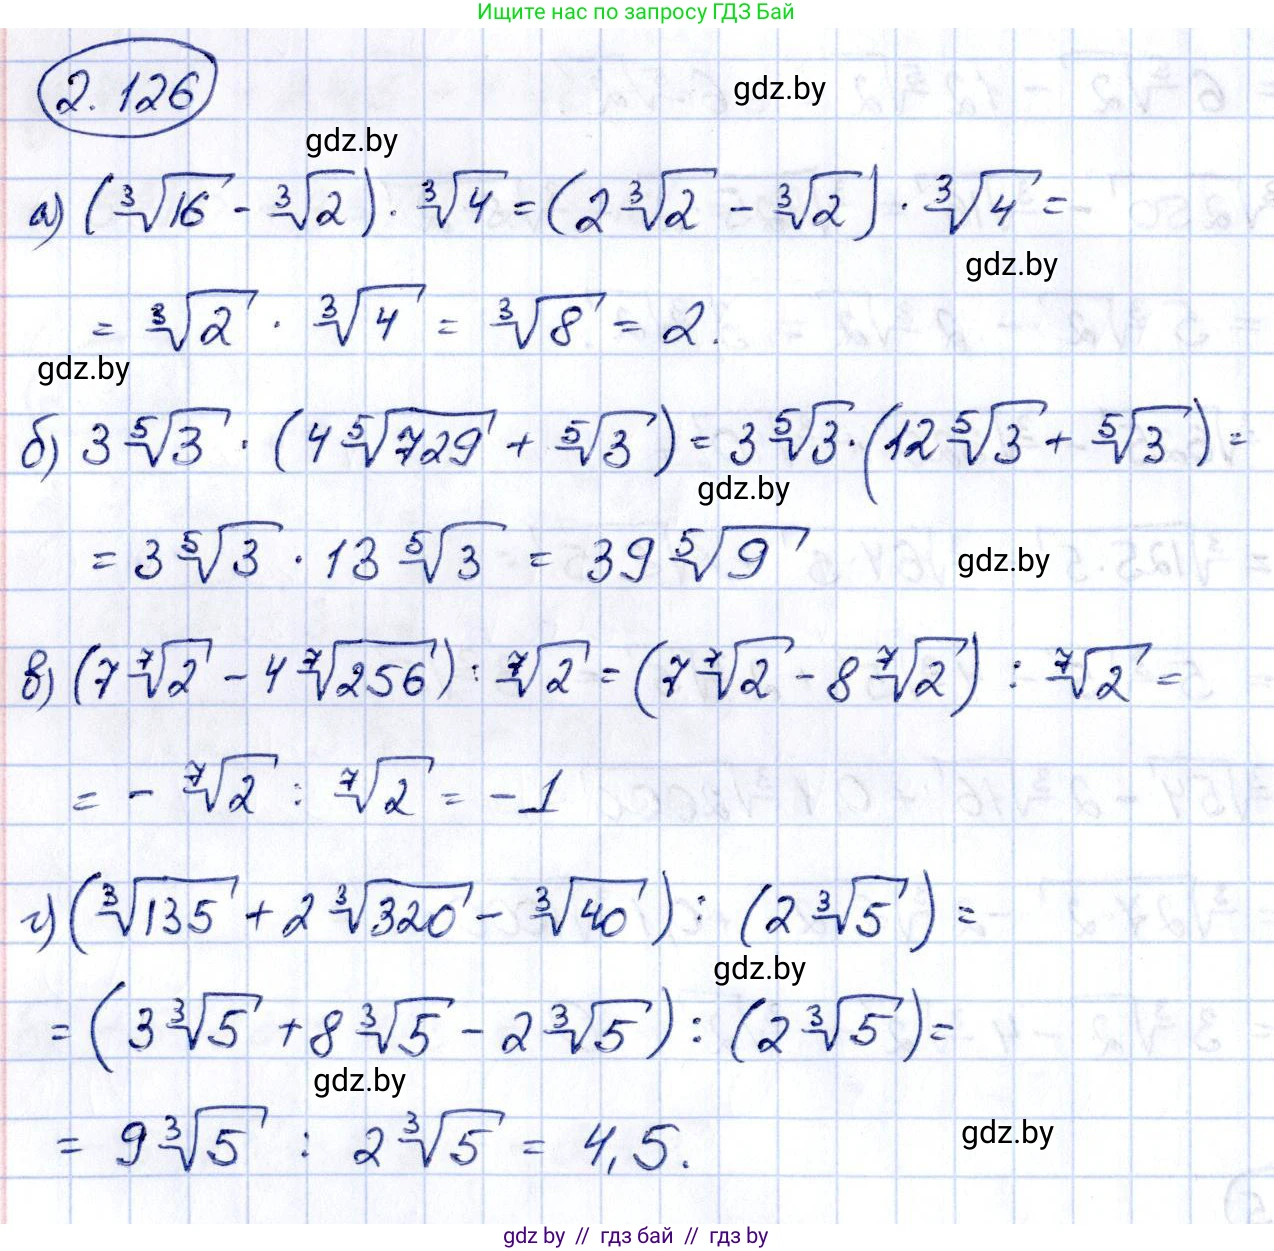 Ищите нас по запросу ГДЗ Бай
2.126
gdz.by
gdz.by
а) (∛16 - ∛2) · ∛4 = (2∛2 - ∛2) · ∛4 =
gdz.by
= ∛2 · ∛4 = ∛8 = 2.
gdz.by
б) 3⁵√3 · (4⁵√729 + ⁵√3) = 3⁵√3 · (12⁵√3 + ⁵√3) =
gdz.by
= 3⁵√3 · 13⁵√3 = 39⁵√9
gdz.by
в) (7⁷√2 - 4⁷√256) : ⁷√2 = (7⁷√2 - 8⁷√2) : ⁷√2 =
= - ⁷√2 : ⁷√2 = -1
г) (∛135 + 2∛320 - ∛40) : (2∛5) =
gdz.by
= (3∛5 + 8∛5 - 2∛5) : (2∛5) =
gdz.by
= 9∛5 : 2∛5 = 4,5.
gdz.by
gdz by // гдз бай // гдз by